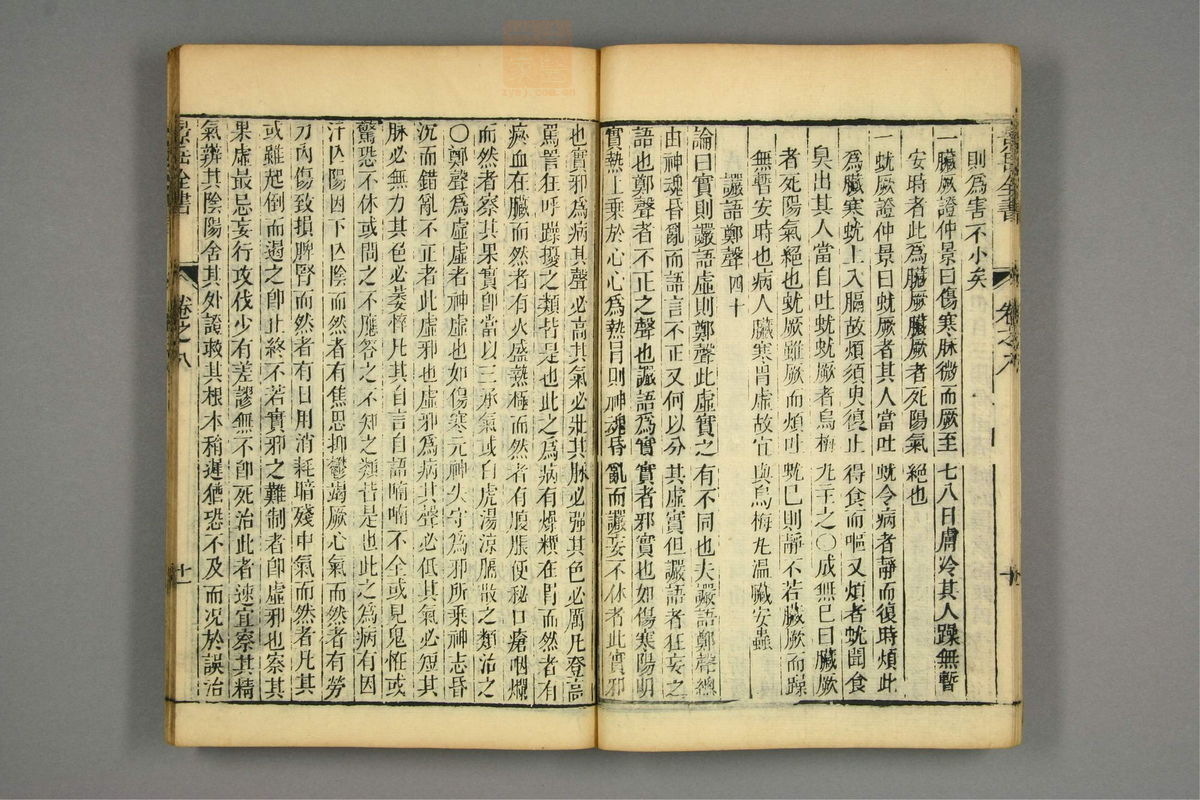 則為害不小矣
一臟厥證仲景曰傷寒脉微而厥至七八日膚冷其人躁無暫
安時者此為臟厥臟厥者死陽氣絕也
一蚘厥證仲景曰蚘厥者其人當吐蚘令病者靜而復時煩此
為臟寒蚘上入膈故煩須臾復止得食而嘔又煩者蚘聞食
臭出其人當自吐蚘蚘厥者烏梅丸主之〇成無巳曰臟厥
者死陽氣絕也蚘厥雖厥而煩吐蚘巳則靜不若臟厥而躁
無暫安時也病人臟寒胃虛故宜與烏梅丸温臟安蟲
譫語鄭聲四十
論曰實則譫語虛則鄭聲此虛實之有不同也夫譫語鄭聲總
由神魂昏亂而語言不正又何以分其虛實但譫語者狂妄之
語也鄭聲者不正之聲也譫語為實實者邪實也如傷寒陽明
實熱上乗於心心為熱冐則神魂昏亂而譫妄不休者此實邪
也實邪為病其聲必高其氣必壯其脉必强其色必厲凡登高
罵詈狂呼躁擾之類皆是也此之為病有燥糞在胃而然者有
瘀血在臟而然者有火盛熱極而然者有腹脹便秘口瘡咽爛
而然者察其果實卽當以三承氣或白虎湯涼膈散之類治之
〇鄭聲為虛虛者神虛也如傷寒元神失守為邪所乗神志昏
沉而錯亂不正者此虛邪也虛邪為病其聲必低其氣必短其
脉必無力其色必萎悴凡其自言自語喃喃不全或見鬼怪或
驚恐不休或問之不應答之不知之類皆是也此之為病有因
汗亾陽因下亾陰而然者有焦思抑鬱竭厥心氣而然者有勞
力內傷致損脾腎而然者有日用消耗暗殘中氣而然者凡其
或雖起倒而遏之卽止終不若實邪之難制者卽虛邪也察其
果虛最忌妄行攻伐少有差謬無不卽死治此者速宜察其精
氣辨其陰陽舍其外證救其根本稍遲猶恐不及而况於誤治
卷之八
十一